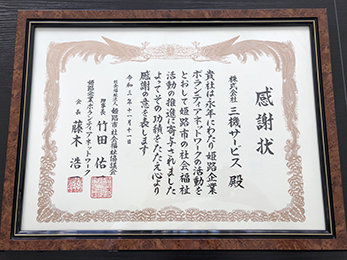 感謝状
株式会社 三機サービス 殿
貴社は永年にわたり姫路企業
ボランティアネットワークの活動を
とおして姫路市の社会福祉
活動の推進に寄与されました
よってその功績をたたえ心より
感謝の意を表します
令和三年十一月十一日
社会福祉法人 姫路市社会福祉協議会
理事長 竹田 佑
姫路企業ボランティアネットワーク
会長 藤木 浩